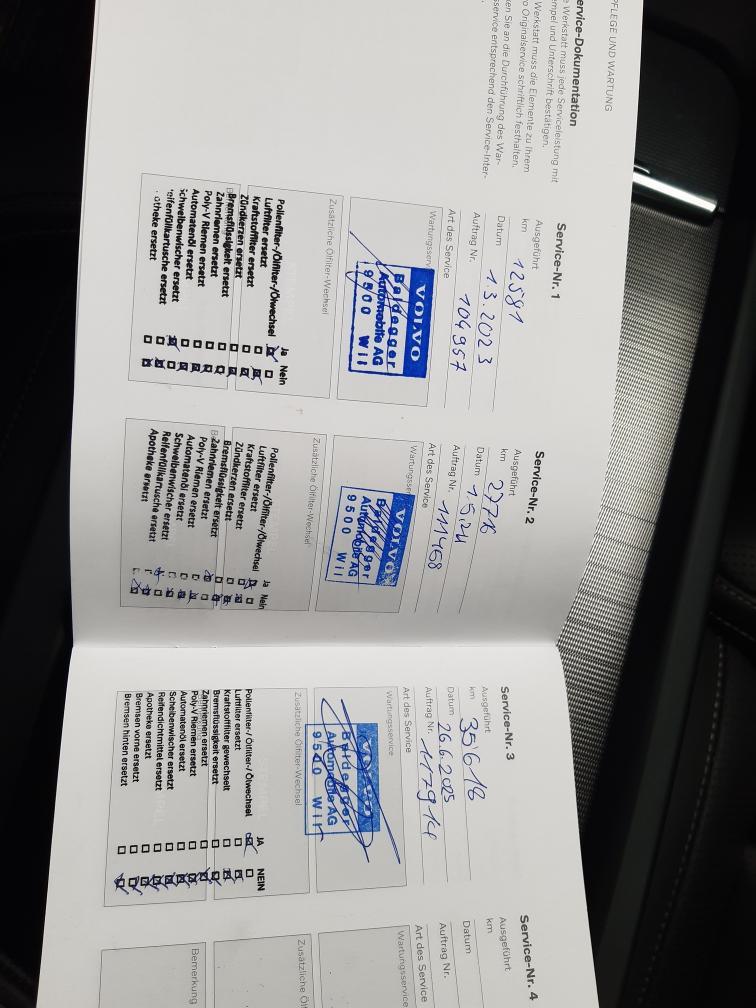 PFLEGE UND WARTUNG
ervice-Dokumentation
e Werkstatt muss jede Serviceleistung mit
empel und Unterschrift bestätigen.
Werkstatt muss die Elemente zu Ihrem
o Originalservice schriftlich festhalten.
ken Sie an die Durchführung des War-
sservice entsprechend den Service-Inter-
Service-Nr. 1
Ausgeführt
km 12581
Datum 1.3.2023
Auftrag Nr. 104957
Art des Service
Wartungsserv
VOLVO
Baldegger
Automobile AG
9500 Wil
Zusätzliche Ölfilter-Wechsel
Ja Nein
Pollenfilter-/Ölfilter-/Ölwechsel
Luftfilter ersetzt
Kraftstofffilter ersetzt
Zündkerzen ersetzt
Bremsflüssigkeit ersetzt
Zahnriemen ersetzt
Poly-V Riemen ersetzt
Automatenöl ersetzt
Schweibenwischer ersetzt
eifenfüllkartusche ersetzt
otheke ersetzt
Service-Nr. 2
Ausgeführt
km 27716
Datum 1.5.24
Auftrag Nr. 111468
Art des Service
Wartungsser
VOLVO
Baldegger
Automobile AG
9500 Wil
Zusätzliche Ölfilter-Wechsel
Ja Nein
Pollenfilter-/Ölfilter-/Ölwechsel
Luftfilter ersetzt
Kraftstofffilter ersetzt
Zündkerzen ersetzt
Bremsflüssigkeit ersetzt
Zahnriemen ersetzt
Poly-V Riemen ersetzt
Automatenöl ersetzt
Schweibenwischer ersetzt
Reifenfüllkartusche ersetzt
Apotheke ersetzt
Service-Nr. 3
Ausgeführt
km 35'618
Datum 26.6.2025
Auftrag Nr. 117914
Art des Service
Wartungsservice
VOLVO
Baldegger
Automobile AG
9500 Wil
Zusätzliche Ölfilter-Wechsel
JA NEIN
Pollenfilter-/ Ölfilter-/ Ölwechsel
Luftfilter ersetzt
Kraftstofffilter gewechselt
Bremsflüssigkeit ersetzt
Zahnriemen ersetzt
Poly-V Riemen ersetzt
Automatenöl ersetzt
Scheibenwischer ersetzt
Reifendichtmittel ersetzt
Apotheke ersetzt
Bremsen vorne ersetzt
Bremsen hinten ersetzt
Service-Nr. 4
Ausgeführt
km
Datum
Auftrag Nr.
Art des Service
Wartungsservice
Zusätzliche Öl
Bemerkung